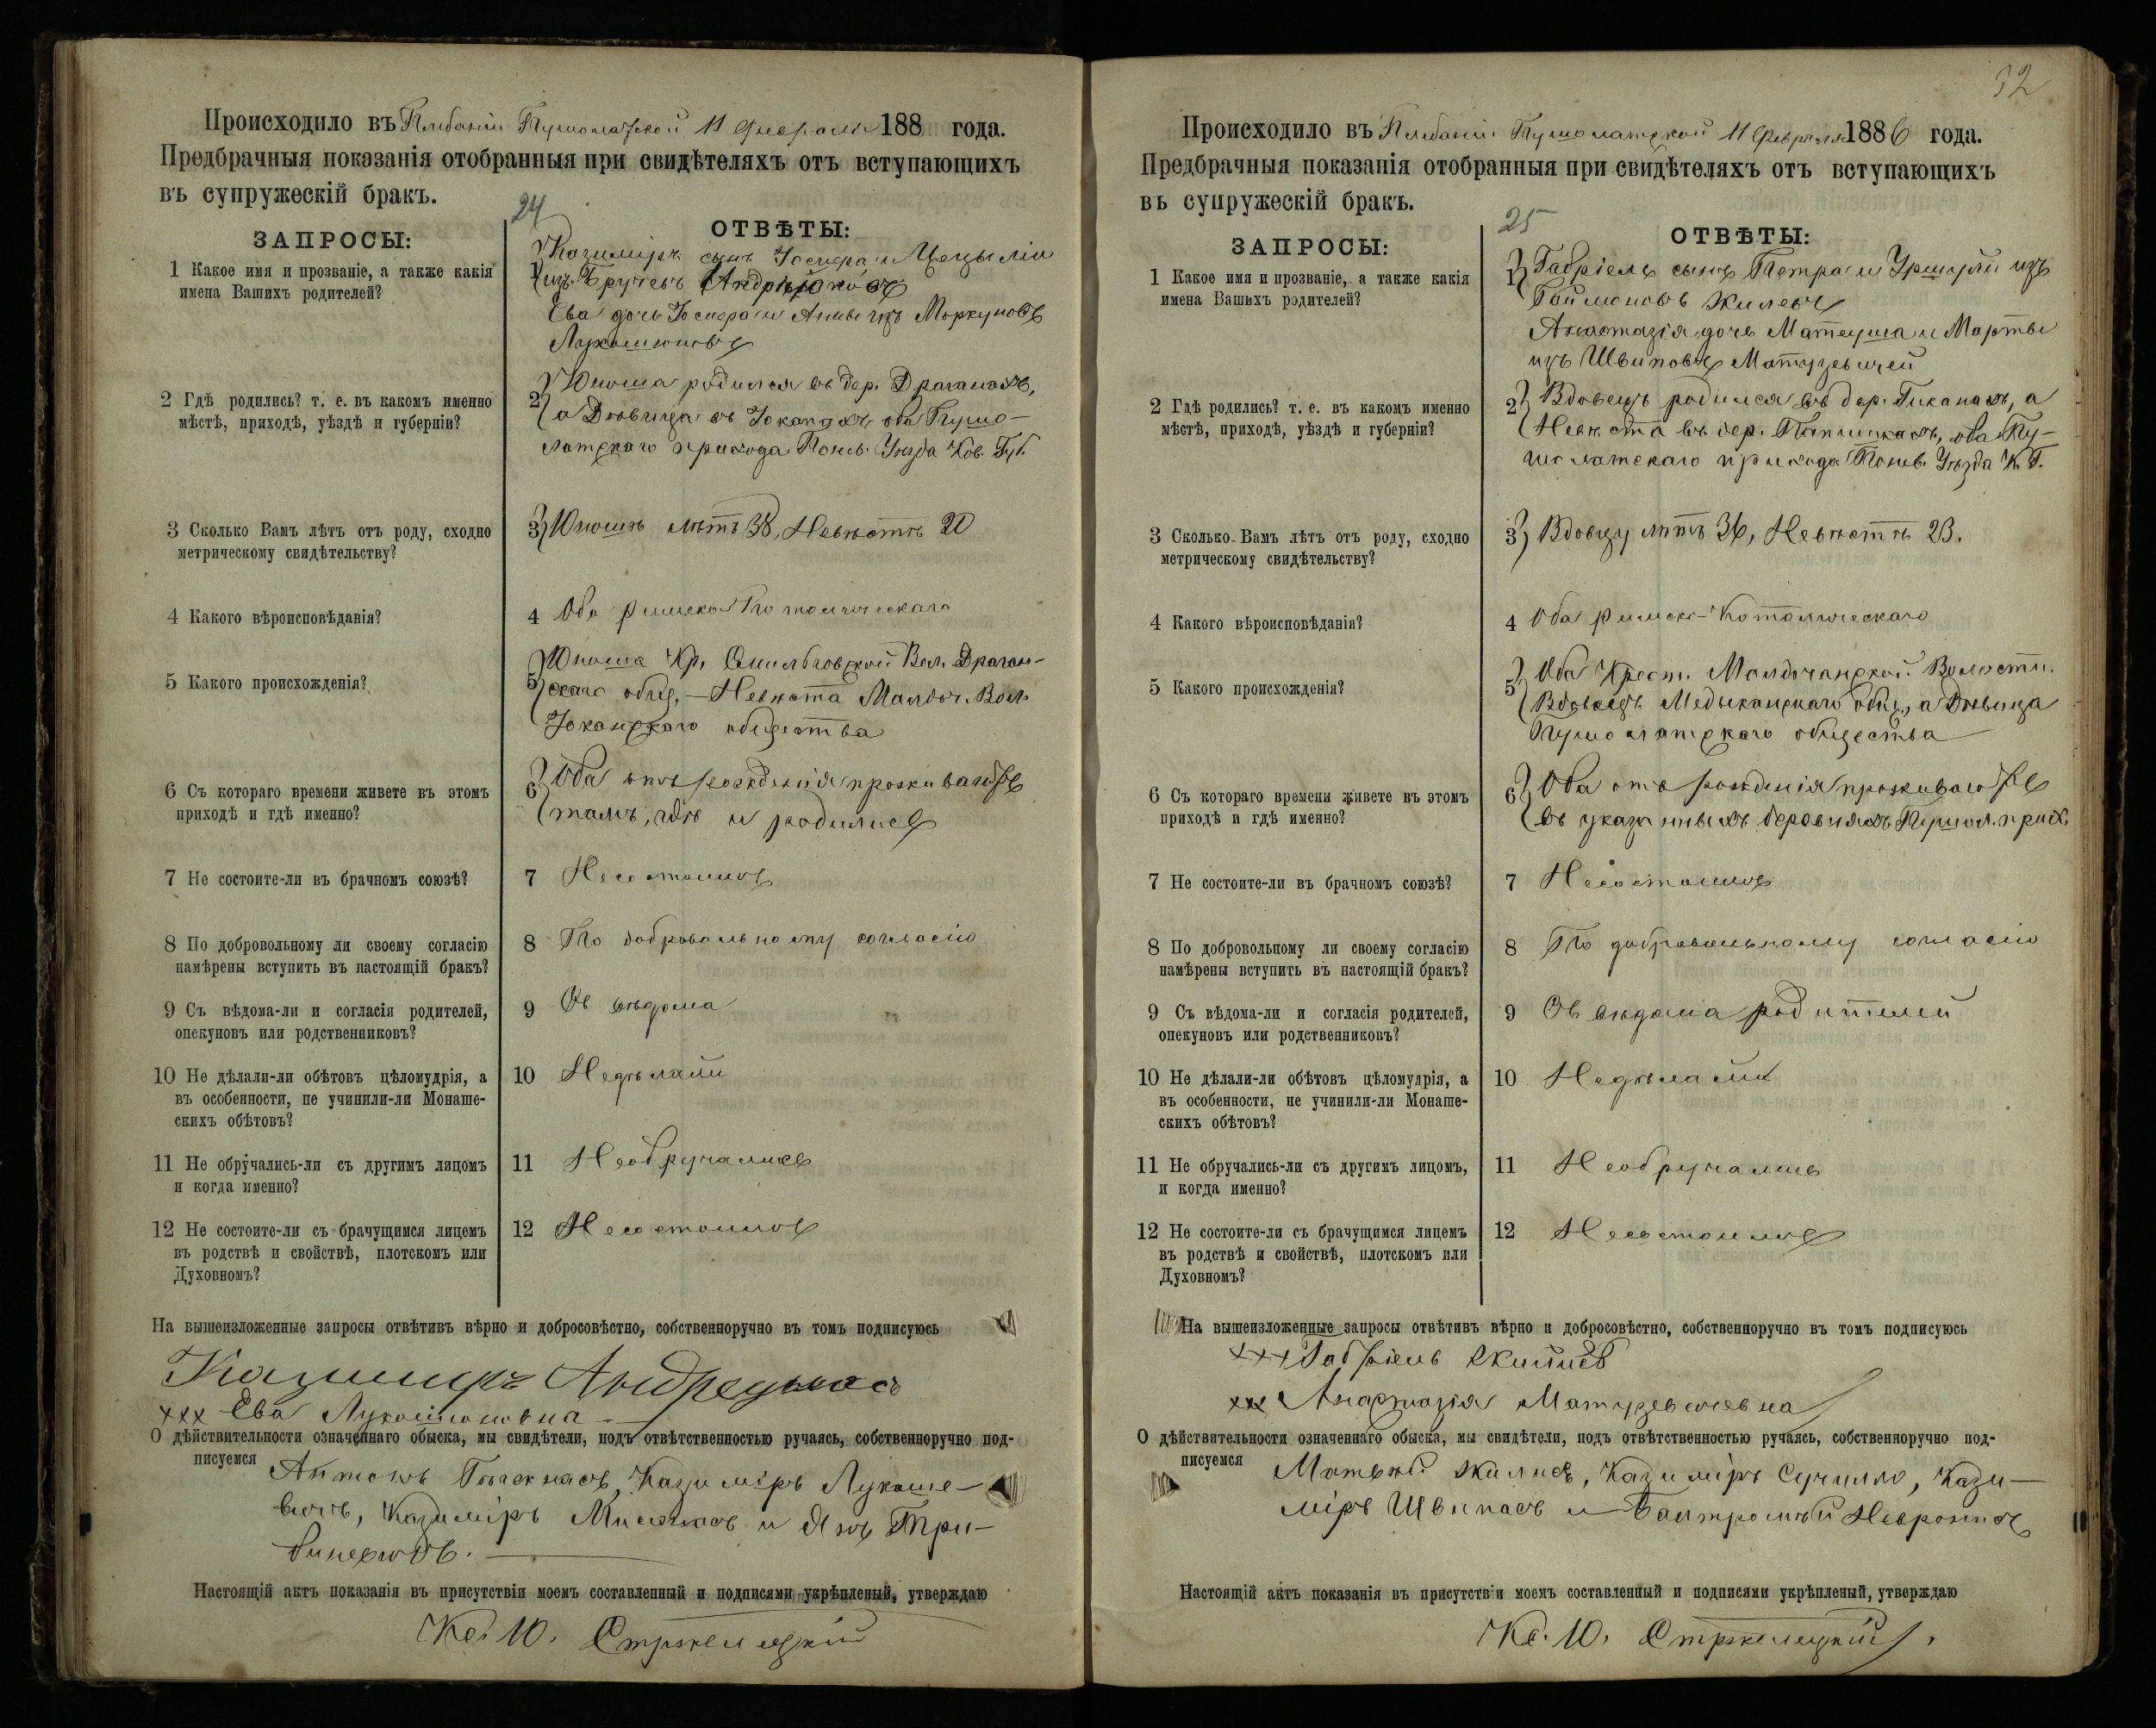 Происходило въ Плебаніи Пушолатской 11 Февраля 188 года.
Предбрачныя показанія отобранныя при свидѣтеляхъ отъ вступающихъ
въ супружескій бракъ.
24
ЗАПРОСЫ:
ОТВѢТЫ:
1 Какое имя и прозваніе, а также какія
имена Вашихъ родителей?
1 Казиміръ сынъ Іосифа и Цецыліи
изъ
Ева дочь Іосифа и Анны изъ Моркуновъ
2 Гдѣ родились? т. е. въ какомъ именно
мѣстѣ, приходѣ, уѣздѣ и губерніи?
2 Юноша родился въ дер. Драганахъ,
а Дѣвица въ Іоканцахъ оба Пушо-
латскаго прихода Понев. Уѣзда Ков. Губ.
3 Сколько Вамъ лѣтъ отъ роду, сходно
метрическому свидѣтельству?
3 Юношѣ лѣтъ 38, Невѣстѣ 20
4 Какого вѣроисповѣданія?
4 Оба римско Католическаго
5 Какого происхожденія?
5 Юноша Кр. Смильговской Вол. Драган-
скаго общ. – Невѣста Малдоч. Вол.
Іоканскаго общества
6 Съ котораго времени живете въ этомъ
приходѣ и гдѣ именно?
6 Оба отъ рожденія проживаютъ
тамъ, гдѣ и родились
7 Не состоите-ли въ брачномъ союзѣ?
7 Несостоимъ
8 По добровольному ли своему согласію
намѣрены вступить въ настоящій бракъ?
8 По добровольному согласію
9 Съ вѣдома-ли и согласія родителей,
опекуновъ или родственниковъ?
9 Съ вѣдома
10 Не дѣлали-ли обѣтовъ цѣломудрія, а
въ особенности, не учинили-ли Монаше-
скихъ обѣтовъ?
10 Недѣлали
11 Не обручались-ли съ другимъ лицомъ
и когда именно?
11 Необручались
12 Не состоите-ли съ брачущимся лицемъ
въ родствѣ и свойствѣ, плотскомъ или
Духовномъ?
12 Несостоимъ
На вышеизложенные запросы отвѣтивъ вѣрно и добросовѣстно, собственноручно въ томъ подписуюсь
Казимиръ
xxx Ева Лукошюновна
О дѣйствительности означеннаго обыска, мы свидѣтели, подъ отвѣтственностью ручаясь, собственноручно под-
писуемся
Антонъ Казиміръ Лукоше-
вичъ, Казиміръ и
Настоящій актъ показанія въ присутствіи моемъ составленный и подписями укрѣпленый, утверждаю
Кс. Ю. Стржелецкій
32
Происходило въ Плебаніи Пушолатской 11 Февраля 1886 года.
Предбрачныя показанія отобранныя при свидѣтеляхъ отъ вступающихъ
въ супружескій бракъ.
25
ЗАПРОСЫ:
ОТВѢТЫ:
1 Какое имя и прозваніе, а также какія
имена Вашихъ родителей?
1 Габріель сынъ Петра и Уршули изъ
Анастазія дочь Матеуша и Марты
изъ Швиповъ Матузевичей
2 Гдѣ родились? т. е. въ какомъ именно
мѣстѣ, приходѣ, уѣздѣ и губерніи?
2 Вдовецъ родился въ дер. Гиканахъ, а
Невѣста въ дер. оба Пу-
шолатскаго прихода Понев. Уѣзда К. Г.
3 Сколько Вамъ лѣтъ отъ роду, сходно
метрическому свидѣтельству?
3 Вдовцу лѣтъ 36, Невѣстѣ 23.
4 Какого вѣроисповѣданія?
4 Оба римско-Католическаго
5 Какого происхожденія?
5 Оба Крест. Малдочанской Волости.
Вдовецъ общ, а Дѣвица
Пушолатскаго общества
6 Съ котораго времени живете въ этомъ
приходѣ и гдѣ именно?
6 Оба отъ рожденія проживаютъ
въ указанныхъ деревняхъ Пушол. прих.
7 Не состоите-ли въ брачномъ союзѣ?
7 Несостоимъ
8 По добровольному ли своему согласію
намѣрены вступить въ настоящій бракъ?
8 По добровольному согласію
9 Съ вѣдома-ли и согласія родителей,
опекуновъ или родственниковъ?
9 Съ вѣдома родителей
10 Не дѣлали-ли обѣтовъ цѣломудрія, а
въ особенности, не учинили-ли Монаше-
скихъ обѣтовъ?
10 Недѣлали
11 Не обручались-ли съ другимъ лицомъ,
и когда именно?
11 Необручались
12 Не состоите-ли съ брачущимся лицемъ
въ родствѣ и свойствѣ, плотскомъ или
Духовномъ?
12 Несостоимъ
На вышеизложенные запросы отвѣтивъ вѣрно и добросовѣстно, собственноручно въ томъ подписуюсь
xxx Габріель
xxx Анастазія Матузевичевна
О дѣйствительности означеннаго обыска, мы свидѣтели, подъ отвѣтственностью ручаясь, собственноручно под-
писуемся
Матвѣй Жилисъ, Казиміръ Сучилло, Кази-
міръ Швипасъ и
Настоящій актъ показанія въ присутствіи моемъ составленный и подписями укрѣпленый, утверждаю
Кс. Ю. Стржелецкій